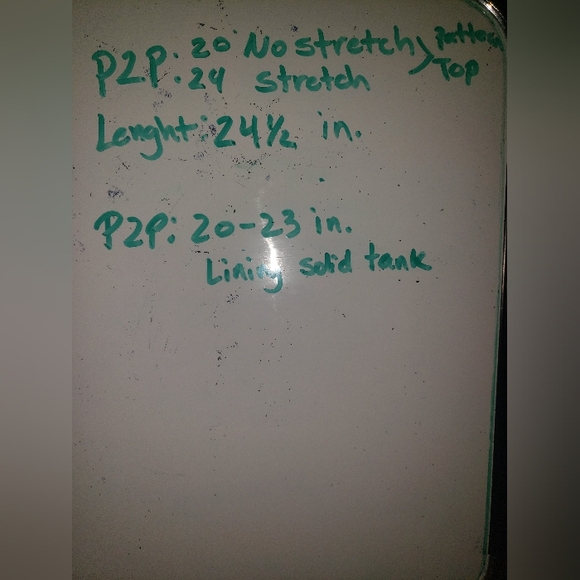 P2P: 20 No stretch
24 stretch
Pattern
Top
Lenght: 24 1/2 in.
P2P: 20-23 in.
Lining solid tank